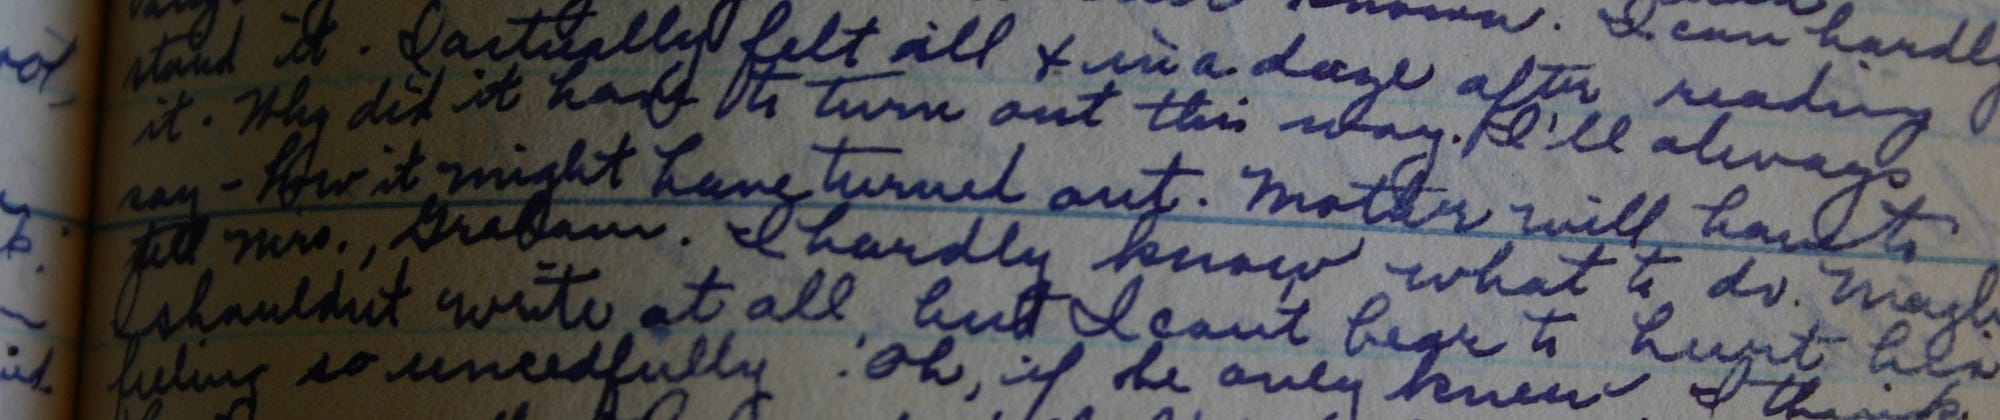 known. I can hardly
stand it. I actually felt ill & in a daze after reading
it. Why did it have to turn out this way. I'll always
say - How it might have turned out. Mother will have to
tell Mrs., Graham. I hardly know what to do. Maybe
I shouldnt write at all, but I cant bear to hurt his
feeling so uncedfully. Oh, if he only knew. I think